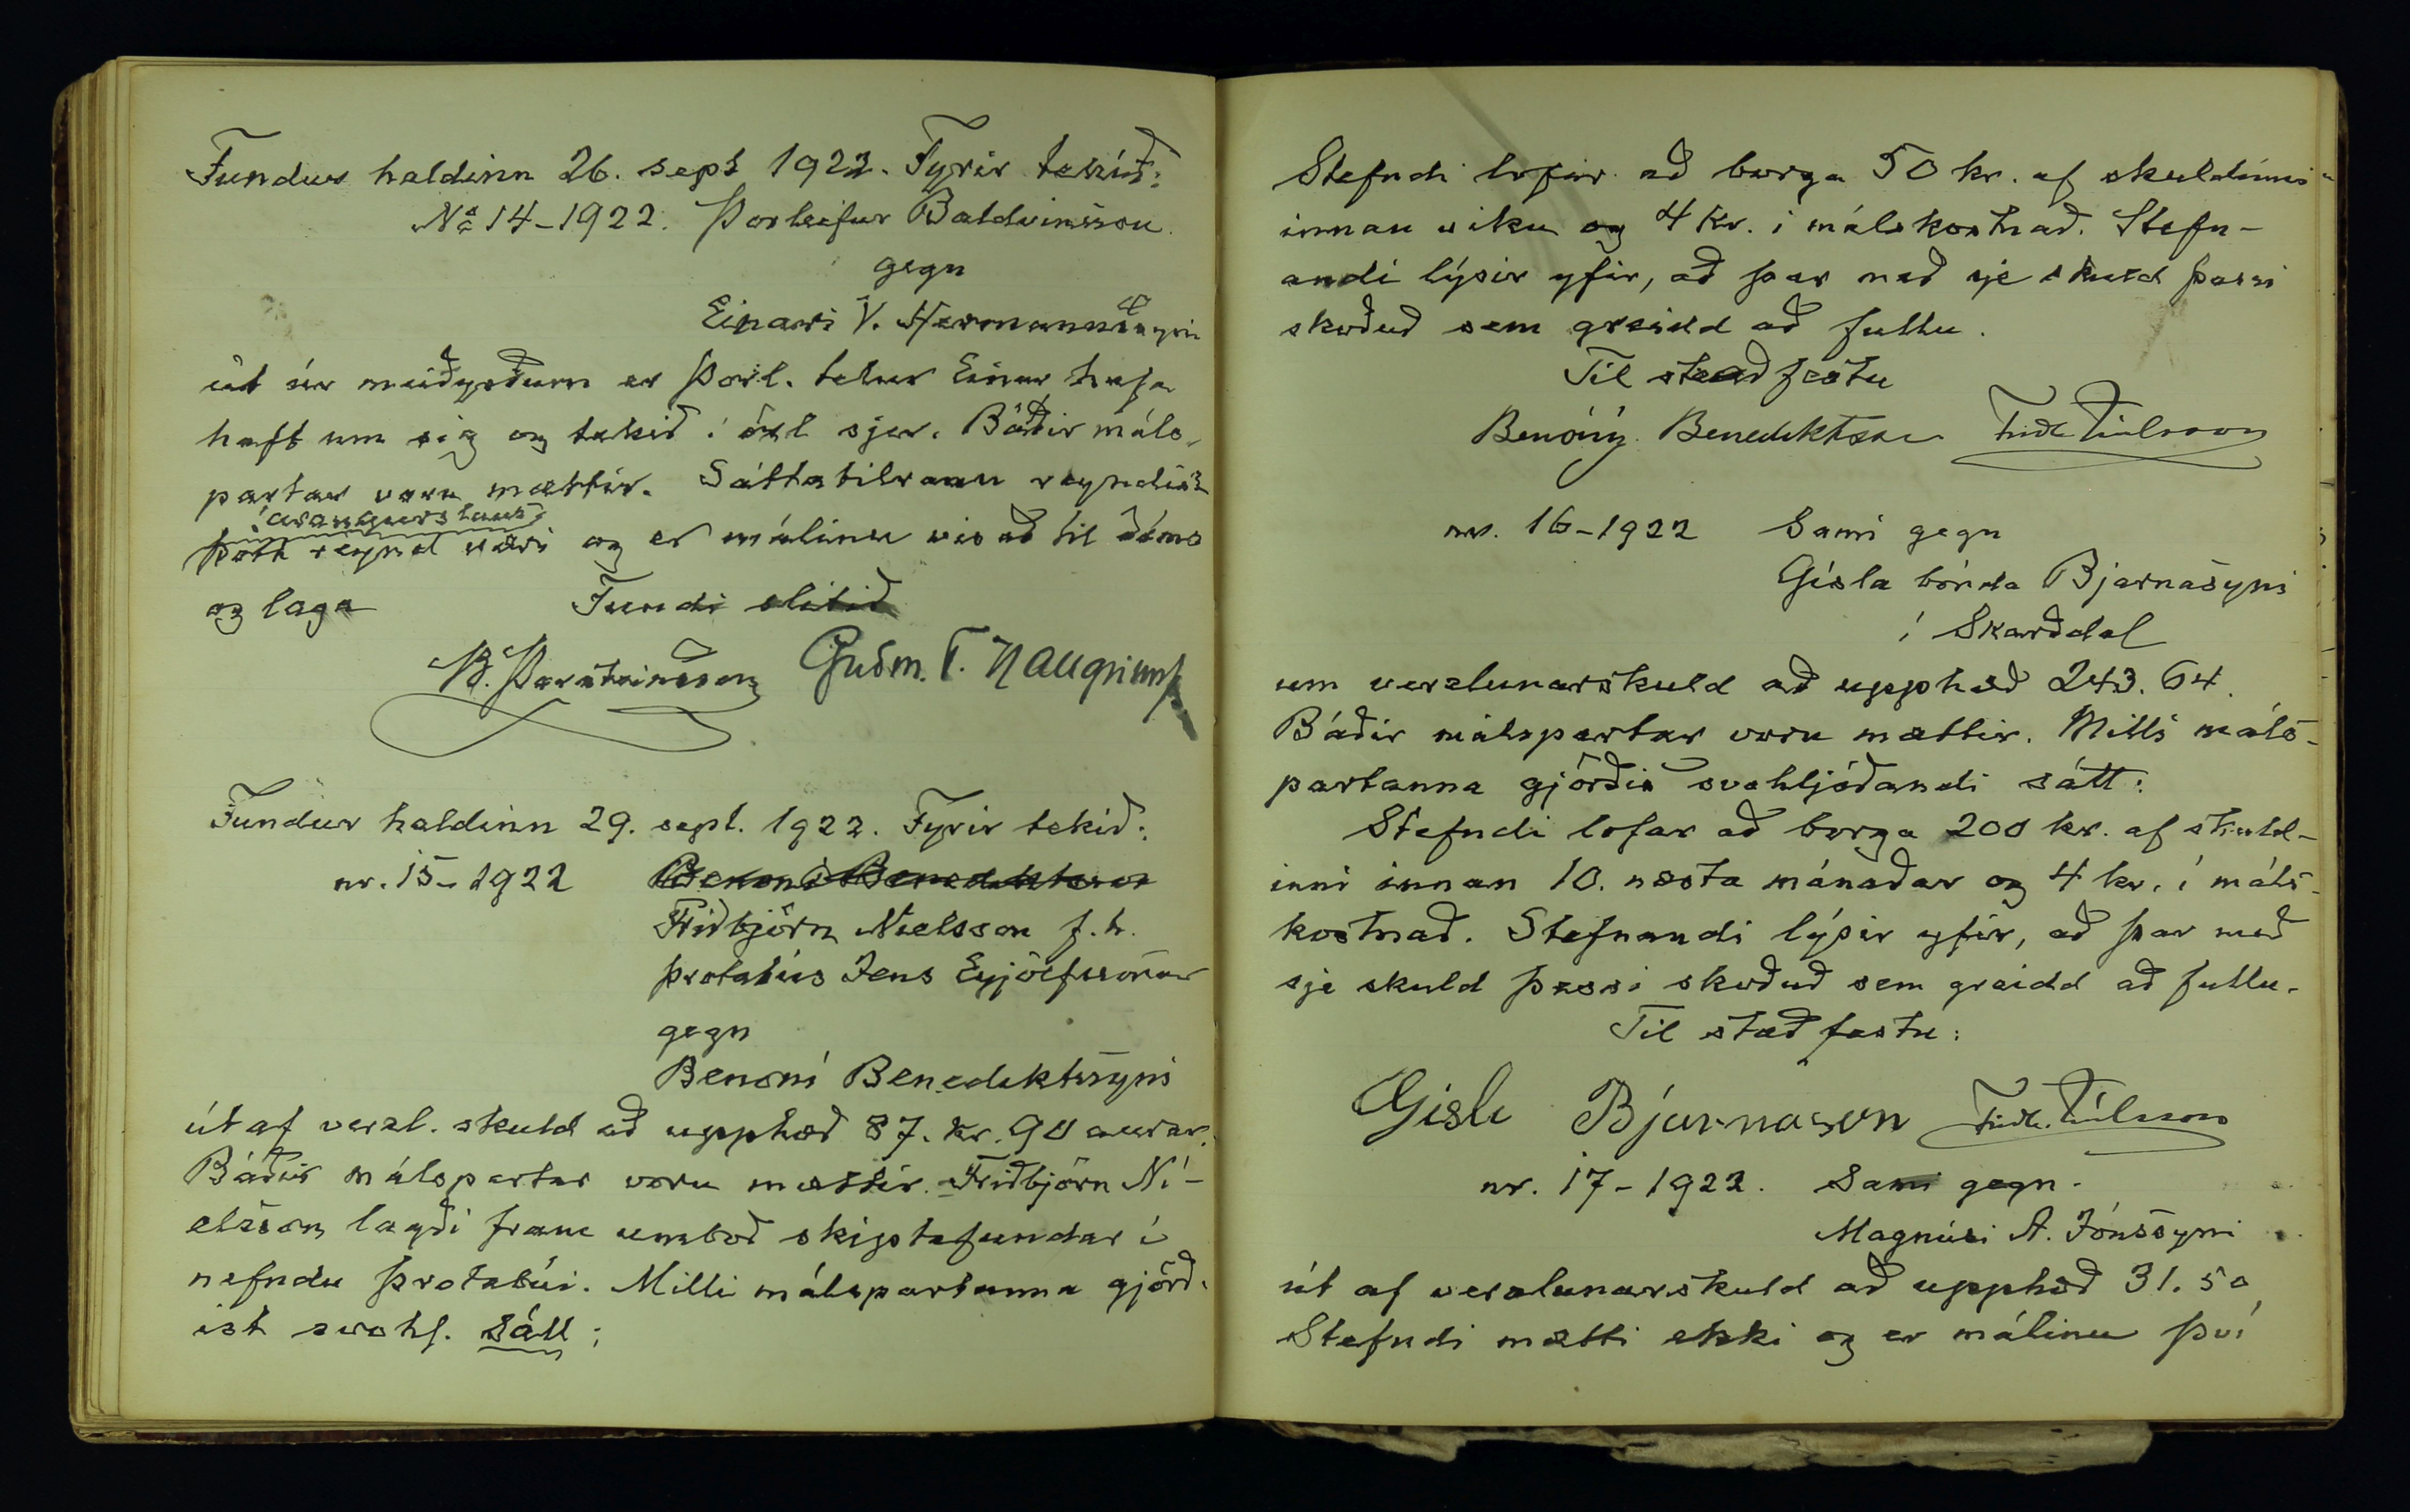 Fundur haldinn 26. sept 1922. Fyrir tekið:
No 14-1922. Þorleifur Baldvinsson
gegn
Einari V. Hermannssyni
út úr meiðyrðum er Þorl. telur Einar hafa
haft um sig og tekið í öxl sjer. Báðir máls-
partar voru mættir. Sáttatilraun reyndist
árangurslaus
þótt reynd væri og er málinu vísað til dóms
og laga Fundi slitið
B. Þorsteinsson Guðm. T. Hallgrímss
Fundur haldinn 29. sept. 1922. Fyrir tekið:
nr. 15-1922 Benoní Benediktsson
Friðbjörn Níelsson f.h.
þrotabús Jens Eyjólfssonar
gegn
Benóní Benediktssyni
út af verzl. skuld að upphæð 87. kr. 90 aurar.
Báðir málspartar voru mættir. Friðbjörn Ní-
elsson lagði fram umboð skiptafundar í
nefndu þrotabúi. Milli málspartanna gjörð-
ist svohlj. sátt:
Stefndi lofar að borga 50 kr. af skuldinni
innan viku og 4 kr. í málskostnað. Stefn-
andi lýsir yfir, að þar með sje skuld þessi
skoðuð sem greidd að fullu.
Til staðfestu
Benóný Benediktsson Friðb. Níelsson
nr. 16-1922 Sami gegn
Gísla bónda Bjarnasyni
í Skarðdal
um verzlunarskuld að upphæð 243.64.
Báðir málspartar voru mættir. Milli máls-
partanna gjörðist svohljóðandi sátt:
Stefndi lofar að borga 200 kr. af skuld-
inni innan 10. næsta mánaðar og 4 kr. í máls-
kostnað. Stefnandi lýsir yfir, að þar með
sje skuld þessi skoðuð sem greidd að fullu.
Til staðfestu:
Gísli Bjarnason Friðb. Níelsson
nr. 17-1922. Sami gegn.
Magnúsi A. Jónssyni
út af verzlunarskuld að upphæð 31.50
Stefndi mætti ekki og er málinu því